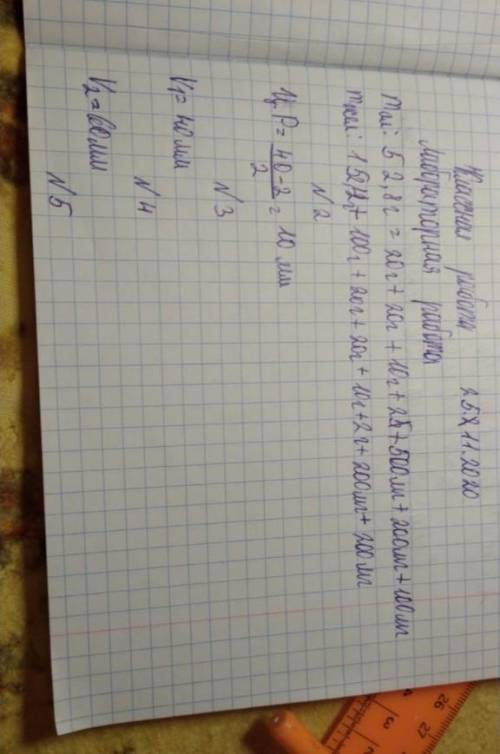 Классная работа 25.11.2020
Лабораторная работа
mал: 52,8г = 20г + 20г + 10г + 2г + 500мг + 200мг + 100мг
100г + 20г + 20г + 10г + 2г + 200мг + 200мг
N2
Ц.Р = 40-2 / 2 = 10 мм
N3
V1 = 40 мм
N4
V2 = 60мм
N5
26
27
3